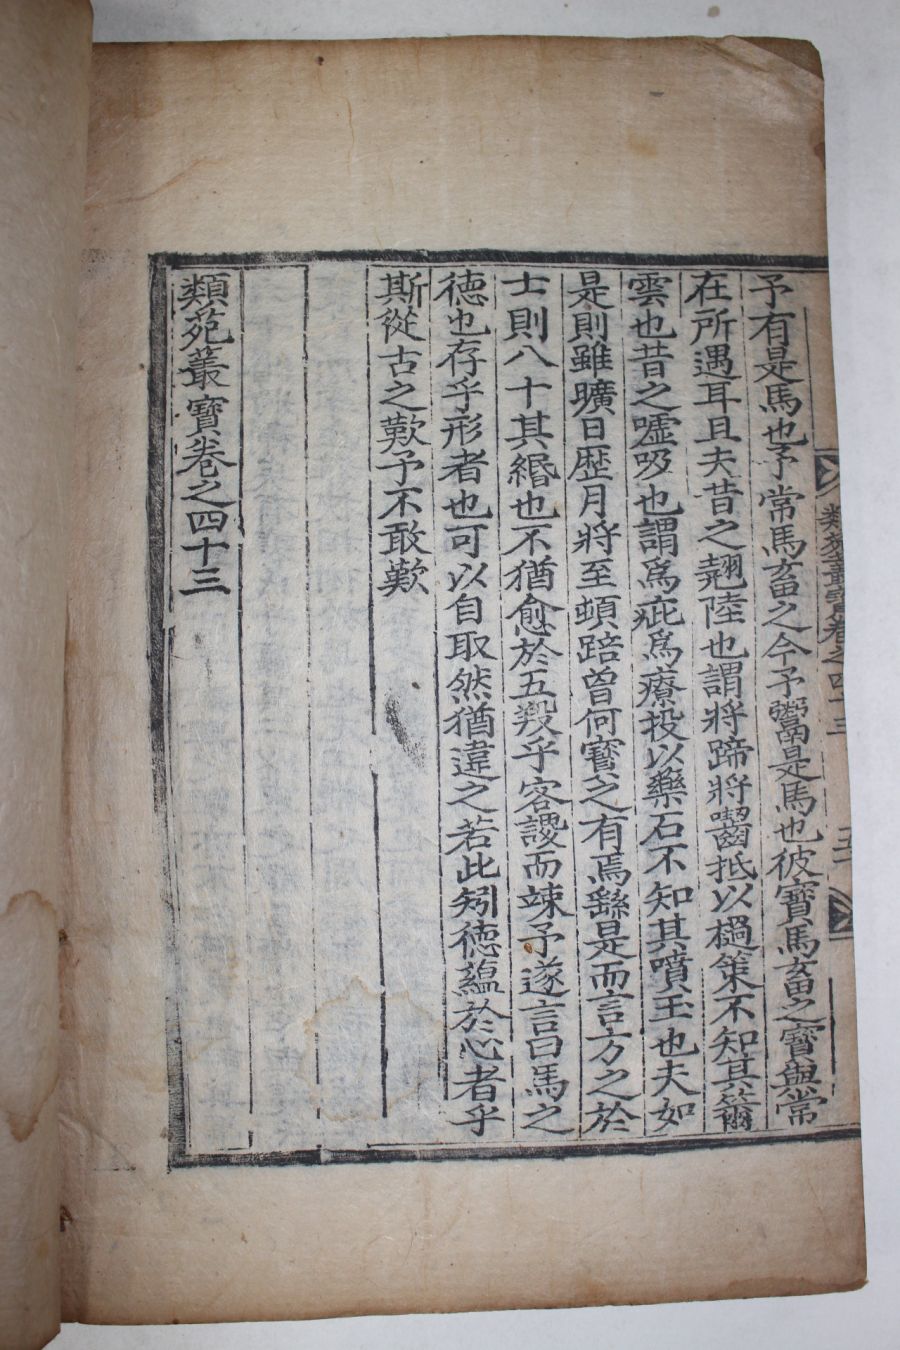 予有是馬也予常馬畜之今予鬻是馬也彼寶馬畜之寶與常
在所遇耳且夫昔之翹陸也謂將蹄將齧抵以檛策不知其籋
雲也昔之噓吸也謂爲疵爲癘投以藥石不知其噴玉也夫如
是則雖曠日歷月將至頓踣曾何寶之有焉繇是而言方之於
士則八十其緡也不猶愈於五羖乎客謖而竦予遂言曰馬之
德也存乎形者也可以自取然猶違之若此矧德蘊於心者乎
斯從古之歎予不敢歎
類苑叢寶卷之四十三
類苑叢寶卷之四十三